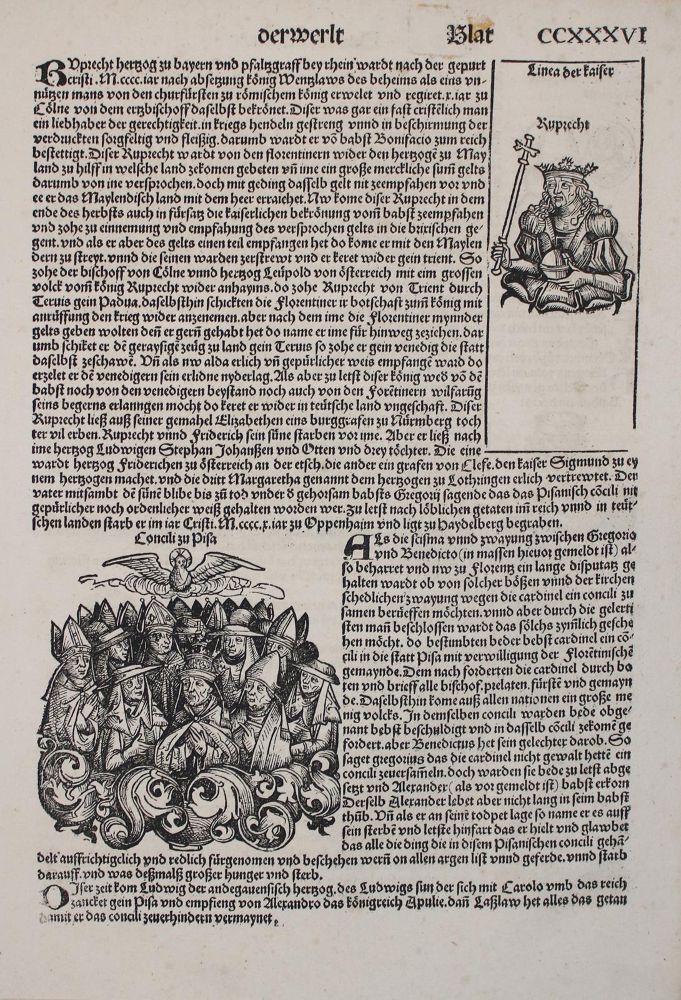 derwerlt Blat CCXXXVI
RVprecht hertzog zu bayern vnd pfaltzgraff bey rhein wardt nach der gepurt
cristi. M.cccc.iar nach absetzung könig Wentzlaws des beheims als eins vn-
nützen mans von den churfürsten zu römischem könig erwelet vnd regiret.x.iar zu
Cölne von dem ertzbischoff daselbst bekrönet. Diser was gar ein fast cristēlich man
ein liebhaber der gerechtigkeit.in kriegs hendeln gestreng vnnd in beschirmung der
verdruckten sorgfeltig vnd fleißig.darumb wardt er vō babst Bonifacio zum reich
bestettigt. Diser Ruprecht wardt von den florentinern wider den hertzogē zu May
land zu hilff in welsche land zekomen gebeten vñ ime ein große merckliche sum̄ gelts
darumb von ine versprochen.doch mit geding dasselb gelt nit zeempfahen vor vnd
ee er das Maylendisch land mit dem heer erraichet. Nw kome diser Ruprecht in dem
ende des herbsts auch in fürsatz die kaiserlichen bekrönung vom̄ babst zeempfahen
vnd zohe zu einnemung vnd empfahung des versprochen gelts in die brixischen ge
gent.vnd als er aber des gelts einen teil empfangen het do kome er mit den Maylen
dern zu streyt.vnnd die seinen warden zerstrewt vnd er keret wider gein trient. So
zohe der bischoff von Cölne vnnd hertzog Leüpold von österreich mit eim grossen
volck vom̄ könig Ruprecht wider anhayms.do zohe Ruprecht von Trient durch
Teruis gein Padua.daselbsthin schickten die Florentiner ir botschaft zum̄ könig mit
anrüffung den krieg wider anzenemen.aber nach dem ime die Florentiner mynnder
gelts geben wolten deñ er gern̄ gehabt het do name er ime für hinweg zeziehen.dar
umb schiket er dē geraysigē zeüg zu land gein Teruis so zohe er gein venedig die statt
daselbst zeschawē. Vñ als nw alda erlich vñ gepürlicher weis empfangē ward do
erzelet er dē venedigern sein erlidne nyderlag. Als aber zu letst diser könig wed vō dē
babst noch von den venedigern beystand noch auch von den Forētinern wilfarūg
seins begerns erlanngen mocht do keret er wider in teütsche land vngeschaft. Diser
Ruprecht ließ auß seiner gemahel Elizabethen eins burggrafen zu Nürmberg toch
ter vil erben. Ruprecht vnnd Friderich sein süne starben vor ime. Aber er ließ nach
ime hertzog Ludwigen Stephan Johanßen vnd Otten vnd drey töchter. Die eine
wardt hertzog Friderichen zu österreich an der etsch.die ander ein grafen von Clefe.den kaiser Sigmund zu ey
nem hertzogen machet.vnd die dritt Margaretha genannt dem hertzogen zu Lothringen erlich vertrewtet. Der
vater mitsambt dē sünē blibe bis zū tod vnder d gehorsam babsts Gregorij sagende das das Pisanisch cōcili nit
gepürlicher noch ordenlicher weiß gehalten worden wer. Zu letst nach löblichen getaten im̄ reich vnnd in teüt-
schen landen starb er im iar Cristi. M.cccc.x.iar zu Oppenhaim vnd ligt zu Haydelberg begraben.
Linea der kaiser
Ruprecht
Concili zu Pisa
ALs die scisma vnnd zwayung zwischen Gregorio
vnnd Benedicto (in massen hieuor gemeldt ist) al-
so beharret vnd nw zu Florentz ein lange disputatz ge
halten wardt ob von solcher bößen vnnd der kirchen
schedlichen zwayung wegen die cardinel ein concili zu
samen berüeffen möchten.vnnd aber durch die gelerti
sten man̄ beschlossen wardt das sölchs zymlich gesche
hen möcht. do bestimbten beder bebst cardinel ein cō-
cili in die statt Pisa mit verwilligung der Florētinischē
gemaynde. Dem nach forderten die cardinel durch bo
ten vnd brieff alle bischof.prelaten.fürstē vnd gemayn
de. Daselbsthin kome auß allen nation ein große me
nig volcks. In demselben concili warden bede obge-
nant bebst beschuldigt vnd in dasselb cōcili zekomē ge
fordert.aber Benedictus het sein gelechter darob. So
saget gregorius das die cardinel nicht gewalt hettē ein
concili zeuersam̄eln.doch warden sie bede zu letst abge
setzt vnd Alexander (als vor gemeldt ist) babst erkorn
Derselb Alexander lebet aber nicht lang in seim babst
thūb. Vñ als er an seinē todpet lage so name er es auff
sein sterbē vnd letste hinfart das er hielt vnd glawbet
das alle die ding die in disem Pisanischen concili gehā-
delt auffrichtigclich vnd redlich fürgenomen vnd beschehen wern̄ on allen argen list vnnd geferde.vnnd starb
darauff.vnd was deßmalß großer hunger vnd sterb.
DIser zeit kom Ludwig der andegauensisch hertzog.des Ludwigs sun der sich mit Carolo vmb das reich
zancket gein Pisa vnd empfieng von Alexandro das königreich Apulie.dañ Laßlaw het alles das getan
damit er das concili zeuerhindern vermaynet.